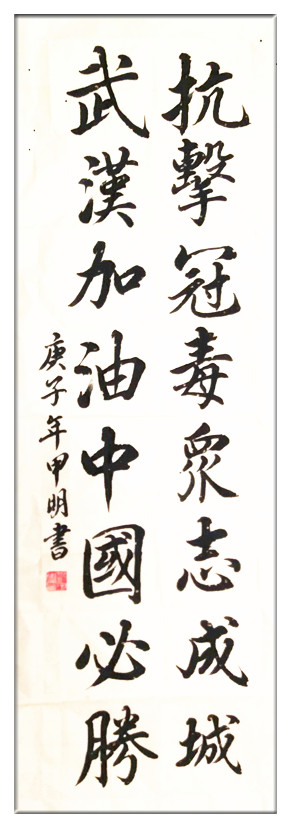 抗擊冠毒眾志成城
武漢加油中國必勝
庚子年甲明書